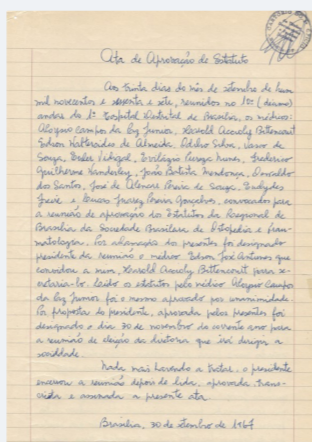 Ata de Aprovação de Estatuto
Aos trinta dias do mês de setembro de hum
mil novecentos e sessenta e sete, reunidos no 10º (décimo)
andar do 1º Hospital Distrital de Brasília, os médicos:
Aloysio Campos da Paz Junior, Acioly Bittencourt
Edson de Almeida, Silva, de
Souza, Nunes, Frederico
Guilherme, João Batista Mendonça, Oswaldo
dos Santos, José de Alencar de Souza,
Freire e Gonçalves, convocados para
a reunião de aprovação do Estatutos da Regional de
Brasília da Sociedade Brasileira de Ortopedia e Trau-
matologia. Por aclamação dos presentes foi designado
presidente da reunião o médico Edson José Antunes que
convidou a mim, Acioly Bittencourt para se-
cretaria-lo. Lido o estatuto pelo médico Aloysio Campos
da Paz Junior foi o mesmo aprovado por unanimidade
Por proposta do presidente, aprovada pelos presentes foi
designado o dia 30 de novembro do corrente ano para
a reunião de eleição da diretoria que irá dirigir a
sociedade.
Nada mais havendo a tratar, o presidente
encerrou a reunião depois de lida, aprovada, trans-
crita e assinada a presente ata.
Brasília, 30 de setembro de 1967